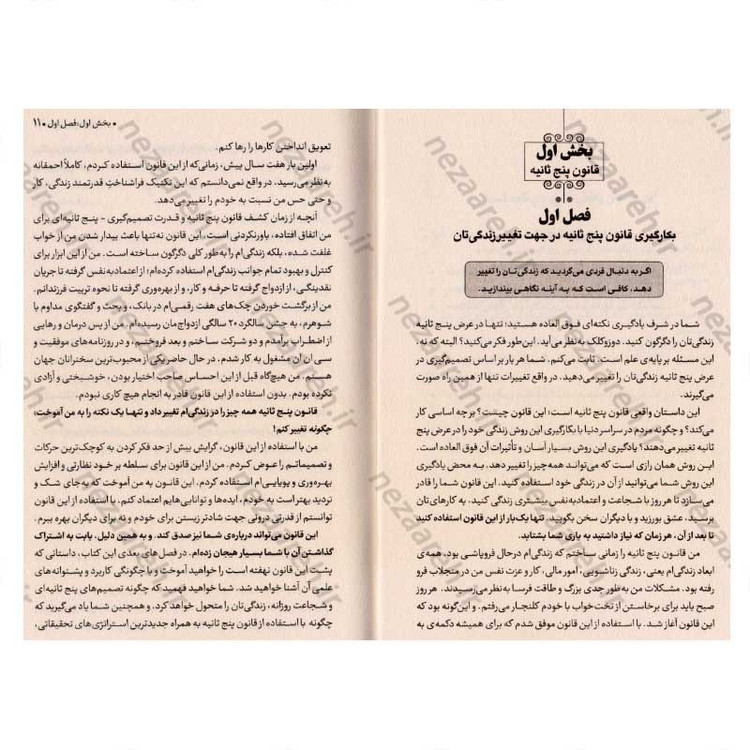 بخش اول
قانون پنج ثانیه
فصل اول
بکارگیری قانون پنج ثانیه در جهت تغییر زندگی‌تان
اگر به دنبال فردی می‌گردید که زندگی‌تان را تغییر
دهد، کافی است که به آینه نگاهی بیندازید.
شما در شرف یادگیری نکته‌ای فوق العاده هستید؛ تنها در عرض پنج ثانیه
زندگی‌تان را دگرگون کنید. دوزوکلک به‌نظر می‌آید. این‌طور فکر می‌کنید؟ البته که نه.
این مسئله بر پایه‌ی علم است. ثابت می‌کنم. شما هر بار بر اساس تصمیم‌گیری در
عرض پنج ثانیه زندگی‌تان را تغییر می‌دهید. در واقع تغییرات تنها از همین راه صورت
می‌گیرند.
این داستان واقعی قانون پنج ثانیه است؛ این قانون چیست؟ بر چه اساسی کار
می‌کند؟ و چگونه مردم در سراسر دنیا با بکارگیری این روش زندگی خود را در عرض پنج
ثانیه تغییر می‌دهند؟ یادگیری این روش بسیار آسان و تأثیرات آن فوق العاده است.
این روش همان رازی است که می‌تواند همه‌چیز را تغییر دهد. به محض یادگیری
این روش شما می‌توانید از آن در زندگی خود استفاده کنید. این قانون شما را قادر
می‌سازد تا هر روز با شجاعت و اعتمادبه‌نفس بیشتری زندگی کنید، به کارهای‌تان
برسید، عشق بورزید و با دیگران سخن بگویید. تنها یک‌بار از این قانون استفاده کنید
تا بعد از آن، هر زمان که نیاز داشتید به یاری شما بشتابد.
من قانون پنج ثانیه را زمانی ساختم که زندگی‌ام درحال فروپاشی بود، همه‌ی
ابعاد زندگی‌ام یعنی، زندگی زناشویی، امور مالی، کار و عزت نفس من در منجلاب فرو
رفته بود. مشکلات من به‌طور جدی بزرگ و طاقت فرسا به نظر می‌رسیدند. هر روز
صبح باید برای برخاستن از تخت‌خواب با خودم کلنجار می‌رفتم. و این‌گونه بود که
این قانون آغاز شد. با استفاده از این قانون موفق شدم که برای همیشه دکمه‌ی به
• بخش اول؛ فصل اول • ۱۱
تعویق انداختن کارها را رها کنم.
اولین بار هفت سال پیش، زمانی‌که از این قانون استفاده کردم، کاملاً احمقانه
به‌نظر می‌رسید. در واقع نمی‌دانستم که این تکنیک فراشناختِ قدرتمند زندگی، کار
و حتی حس من نسبت به خودم را تغییر می‌دهد.
آنچه از زمان کشف قانون پنج ثانیه و قدرت تصمیم‌گیری - پنج ثانیه‌ای برای
من اتفاق افتاده، باورنکردنی است. این قانون نه‌تنها باعث بیدار شدن من از خواب
غفلت شده، بلکه زندگی‌ام را به‌طور کلی دگرگون ساخته است. من از این ابزار برای
کنترل و بهبود تمام جوانب زندگی‌ام استفاده کرده‌ام؛ از اعتمادبه‌نفس گرفته تا جریان
نقدینگی، از ازدواج گرفته تا حرفه و کار، و از بهره‌وری گرفته تا نحوه تربیت فرزندانم.
من از برگشت خوردن چک‌های هفت رقمی‌ام در بانک، و بحث و گفتگوی مداوم با
شوهرم، به جشن سالگرد ۲۰ سالگی ازدواج‌مان رسیده‌ام. من از پس درمان و رهایی
از اضطراب برآمدم و دو شرکت ساختم و بعد فروختم، و در روزنامه‌های موفقیت و
سی ان ان مشغول به کار شدم. در حال حاضر یکی از محبوب‌ترین سخنرانان جهان
هستم. من هیچ‌گاه قبل از این احساس صاحب اختیار بودن، خوشبختی و آزادی
نکرده بودم. بدون استفاده از این قانون قادر به انجام هیچ کاری نبودم.
قانون پنج ثانیه همه چیز را در زندگی‌ام تغییر داد و تنها یک نکته را به من آموخت؛
چگونه تغییر کنم!
من با استفاده از این قانون، گرایش بیش از حد فکر کردن به کوچک‌ترین حرکات
و تصمیماتم را عوض کردم. من از این قانون برای سلطه بر خود نظارتی و افزایش
بهره‌وری و پویایی‌ام استفاده کردم. این قانون به من آموخت که به‌جای شک و
تردید بهتر است به خودم، ایده‌ها و توانایی‌هایم اعتماد کنم. با استفاده از این قانون
توانستم از قدرتی درونی جهت شادتر زیستن برای خودم و نه برای دیگران بهره ببرم.
این قانون می‌تواند درباره‌ی شما نیز صدق کند. و به همین دلیل، بابت به اشتراک
گذاشتن آن با شما بسیار هیجان زده‌ام. در فصل‌های بعدی این کتاب، داستانی که
پشت این قانون نهفته است را خواهید آموخت و با چگونگی کاربرد و پشتوانه‌های
علمی آن آشنا خواهید شد. شما خواهید فهمید که چگونه تصمیم‌های پنج ثانیه‌ای
و شجاعت روزانه، زندگی‌تان را متحول خواهد کرد. و همچنین شما یاد می‌گیرید که
چگونه با استفاده از قانون پنج ثانیه به همراه جدیدترین استراتژی‌های تحقیقاتی،
nezaareh.ir